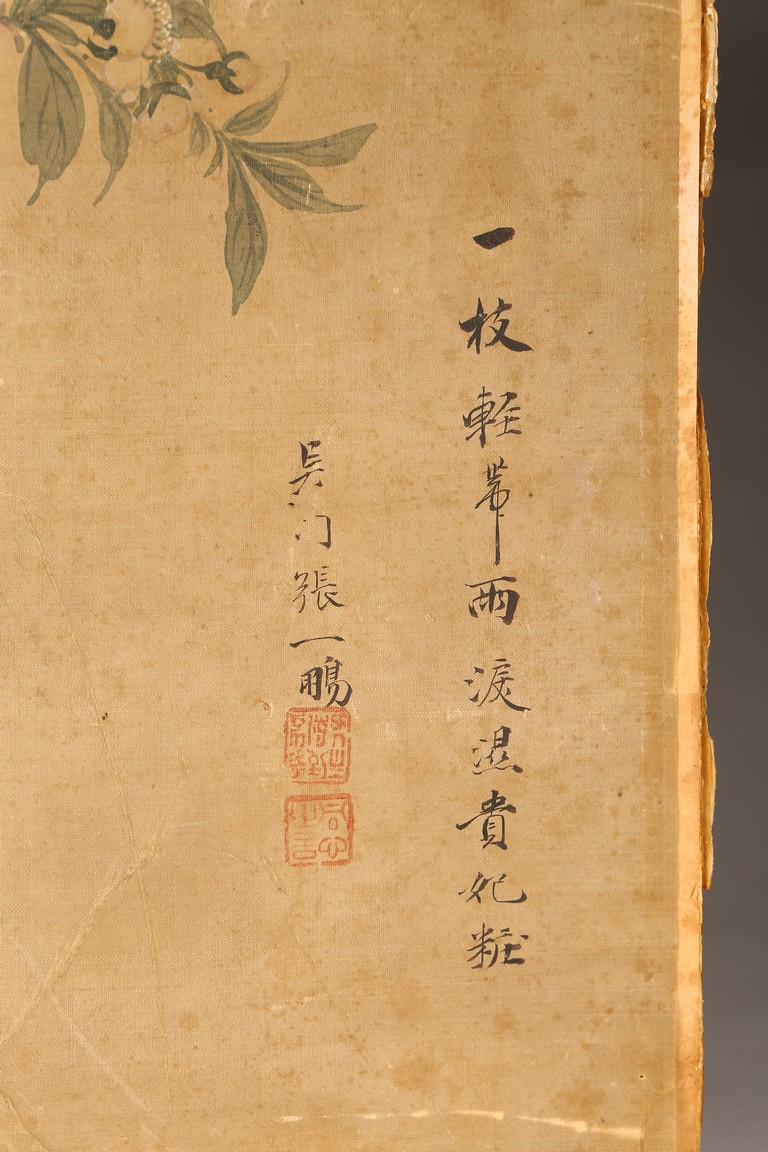 一枝軽帯雨淚濕貴妃粧
吳门張一鵬